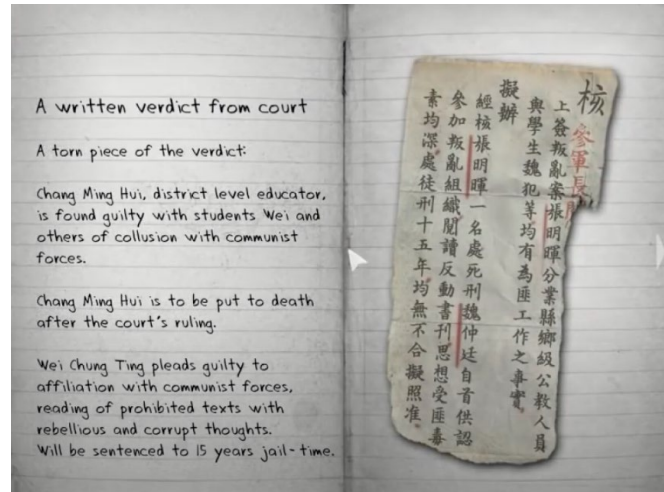 A written verdict from court
A torn piece of the verdict:
Chang Ming Hui, district level educator,
is found guilty with students Wei and
others of collusion with communist
forces.
Chang Ming Hui is to be put to death
after the court's ruling.
Wei Chung Ting pleads guilty to
affiliation with communist forces,
reading of prohibited texts with
rebellious and corrupt thoughts.
Will be sentenced to 15 years jail-time.
核 參軍長
上簽叛亂案張明暉分業縣鄉級公教人員
與學生魏犯等均有為匪工作之事實。
擬辦
經核張明暉一名處死刑魏仲廷自首供認
參加叛亂組織閱讀反動書刊思想受匪毒
素均深處徒刑十五年均無不合擬照准。